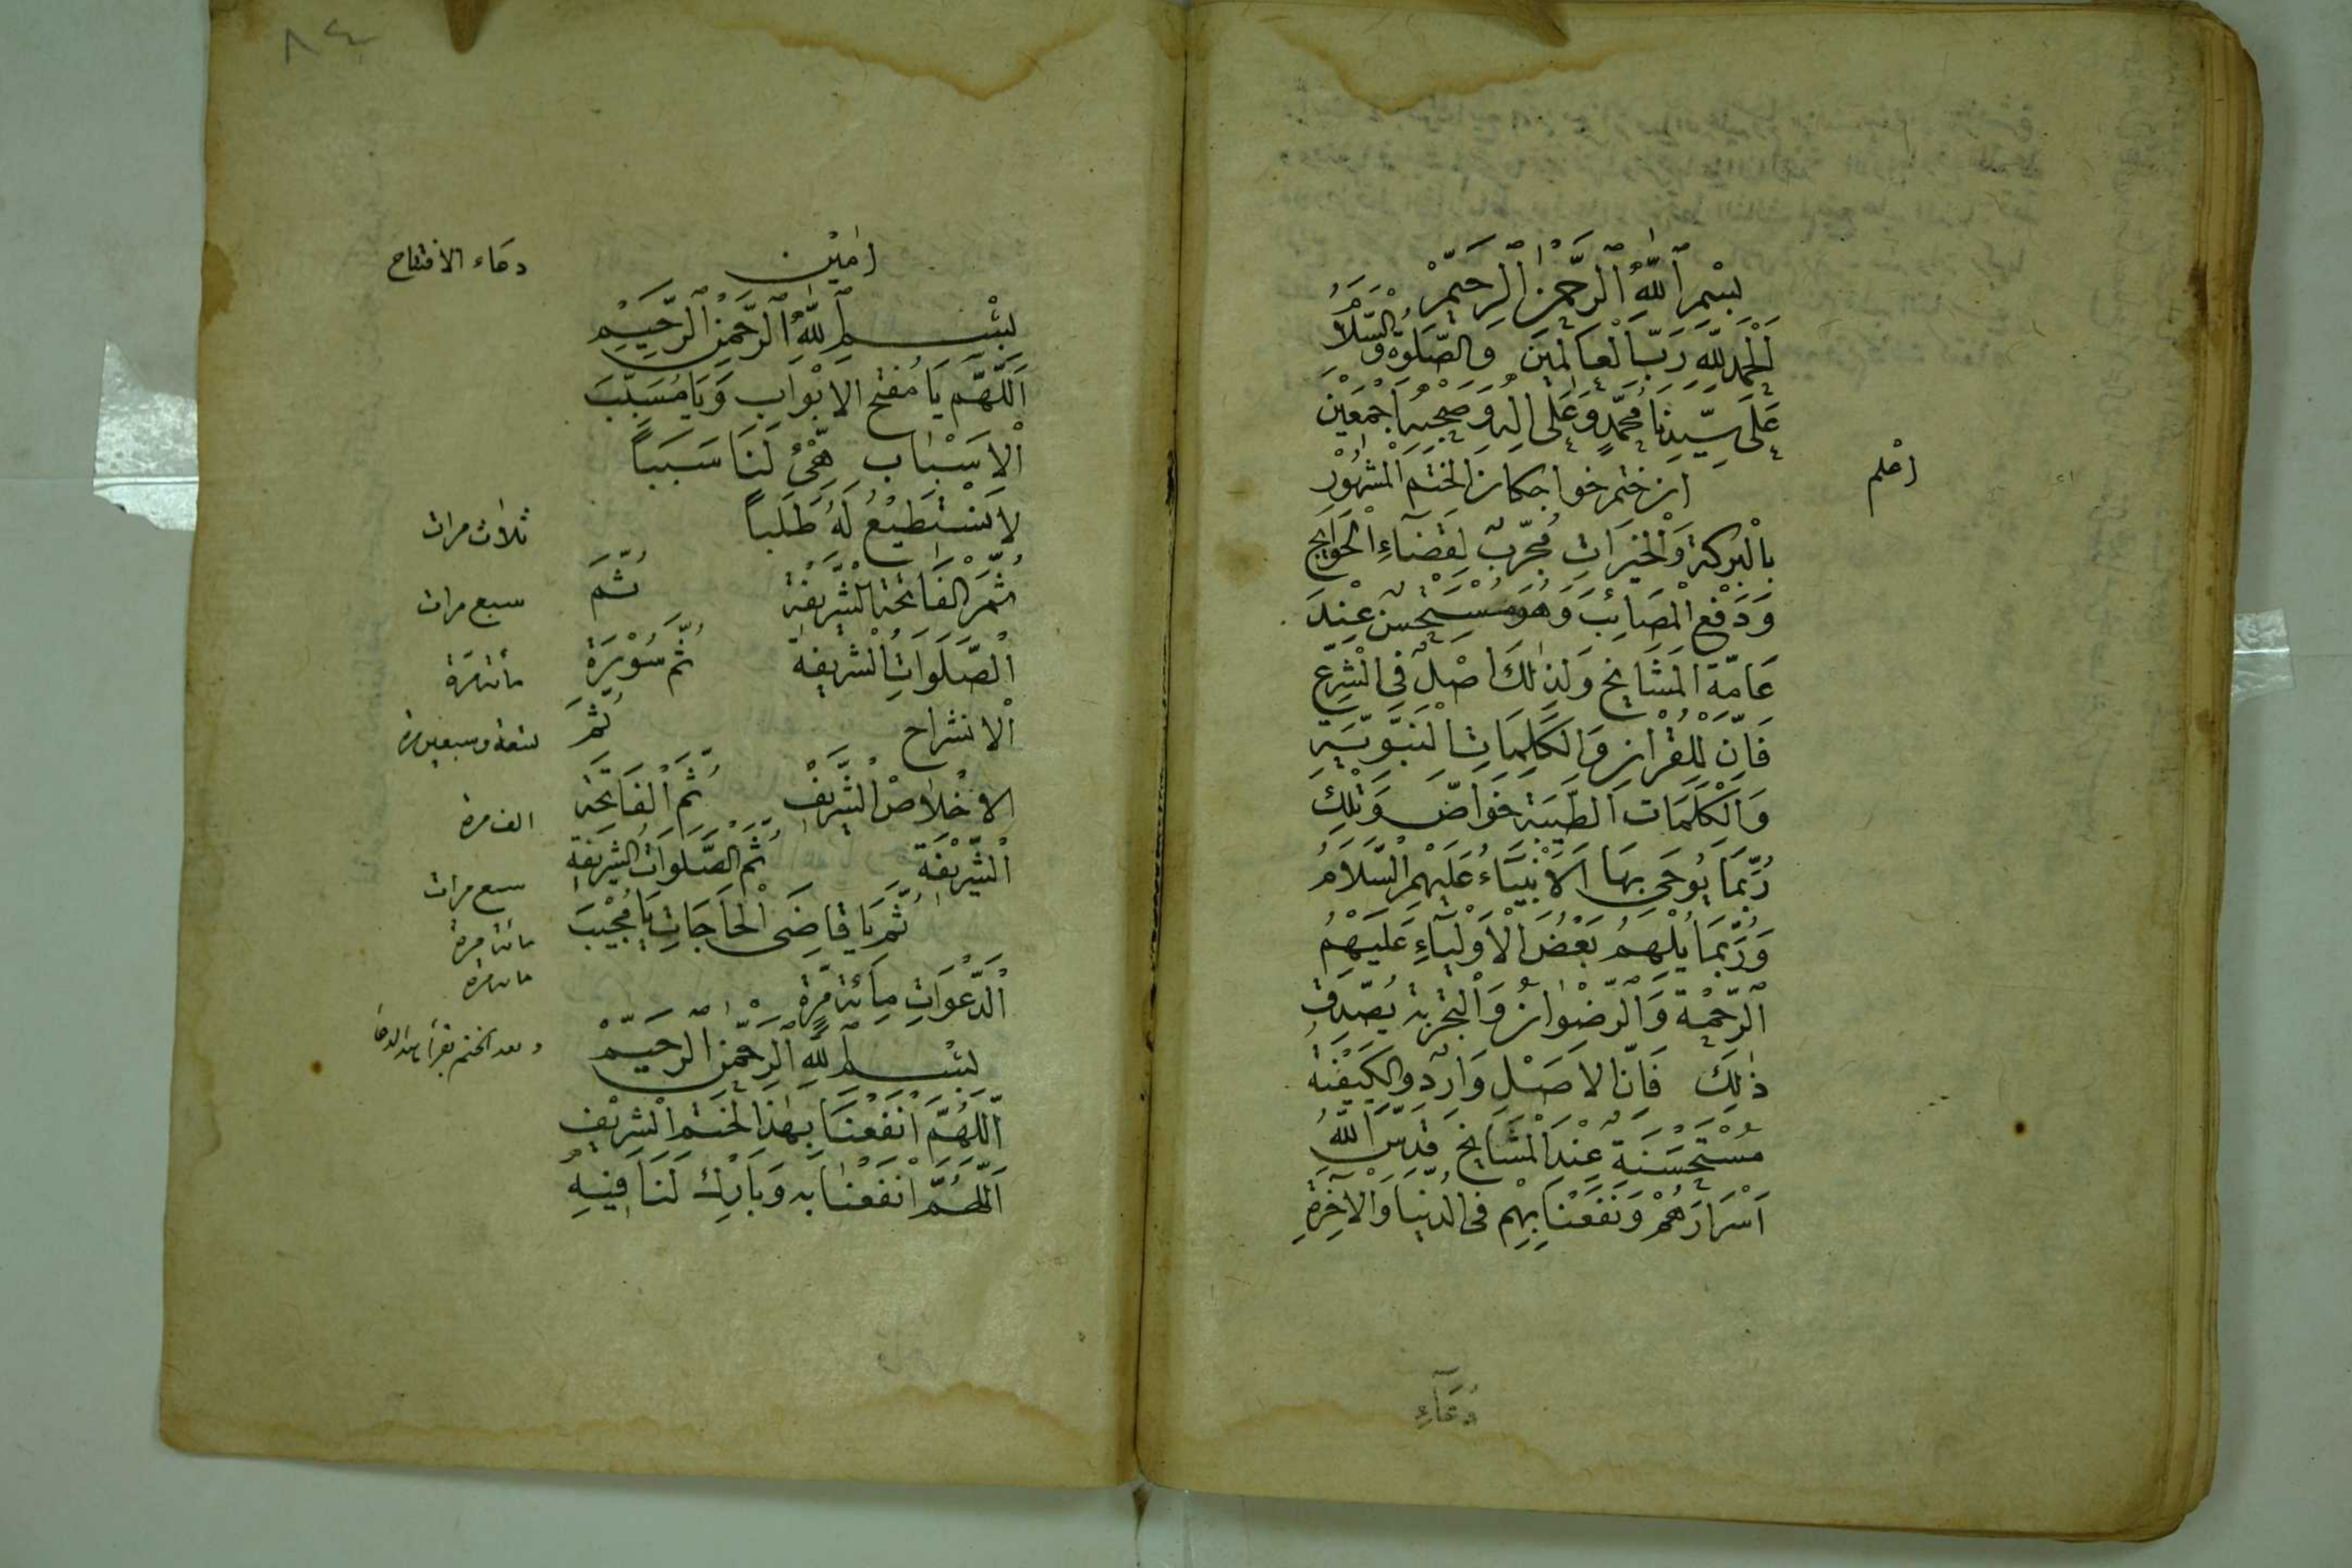 بِسْمِ اللّٰهِ الرَّحْمٰنِ الرَّحِيْمْ
اَلْحَمْدُ لِلّٰهِ رَبِّ الْعَالَمِيْنَ وَالصَّلٰوةُ وَالسَّلَامُ
عَلَى سَيِّدِنَا مُحَمَّدٍ وَعَلٰى اٰلِهِ وَصَحْبِهِ اَجْمَعِيْنَ
اعْلَم
ان ختم خواجكان الختم المشهور
بِالْبَرَكَةِ وَالْخَيْرَاتِ مُجَرَّبٌ لِقَضَاءِ الْحَوَايِجِ
وَدَفْعِ الْمَصَائِبِ وَهُوَ مُسْتَحْسَنٌ عِنْدَ
عَامَّةِ الْمَشَايِخِ وَلِذٰلِكَ اَصْلٌ فِي الشَّرْعِ
فَاِنَّ لِلْقُرْاٰنِ وَالْكَلِمَاتِ النَّبَوِيَّةِ
وَالْكَلِمَاتِ الطَّيِّبَةِ خَوَاصَّ وَتِلْكَ
رُبَّمَا يُوحَى بِهَا الْاَنْبِيَاءُ عَلَيْهِمُ السَّلَامُ
وَرُبَّمَا يُلْهَمُ بَعْضُ الْاَوْلِيَاءِ عَلَيْهِمُ
الرَّحْمَةُ وَالرِّضْوَانُ وَالتَّجْرِبَةُ يُصَدِّقُ
ذٰلِكَ فَاِنَّ الْاَصْلَ وَارِدٌ وَالْكَيْفِيَّةُ
مُسْتَحْسَنَةٌ عِنْدَ الْمَشَايِخِ قَدَّسَ اللّٰهُ
اَسْرَارَهُمْ وَنَفَعَنَا بِهِمْ فِى الدُّنْيَا وَالْاٰخِرَةِ
دُعَاءِ
٨٤
اٰمِيْن
دعاء الافتتاح
بِسْمِ اللّٰهِ الرَّحْمٰنِ الرَّحِيْمِ
اَللّٰهُمَّ يَا مُفَتِّحَ الْاَبْوَابِ وَيَا مُسَبِّبَ
الْاَسْبَابِ هَيِّئْ لَنَا سَبَباً
لَا نَسْتَطِيْعُ لَهُ طَلَباً
ثلاث مرات
ثُمَّ الْفَاتِحَةَ الشَّرِيفَةَ ثُمَّ
سبع مرات
الصَّلَوَاتِ الشَّرِيفَةَ ثُمَّ سُوْرَةَ
مائة مرة
الْانشراح ثُمَّ
تسعة وسبعين مرة
الْاِخْلَاصْ الشَّرِيْفِ ثُمَّ الْفَاتِحَة
الف مرة
الشَّرِيْفَةِ ثُمَّ الصَّلَوَاتِ الشَّرِيْفَةِ
سبع مرات
ثُمَّ يَا قَاضِىَ الْحَاجَاتِ يَا مُجِيْبَ
مائة مرة
الدَّعَوَاتِ مِائَةَ مَرَّةٍ
مائة مرة
بِسْمِ اللّٰهِ الرَّحْمٰنِ الرَّحِيْمْ
وبعد الختم يقرأ هذا الدعاء
اَللّٰهُمَّ انْفَعْنَا بِهٰذَا الْخَتْمِ الشَّرِيْفِ
اَللّٰهُمَّ انْفَعْنَا بِهِ وَبَارِكْ لَنَا فِيْهِ